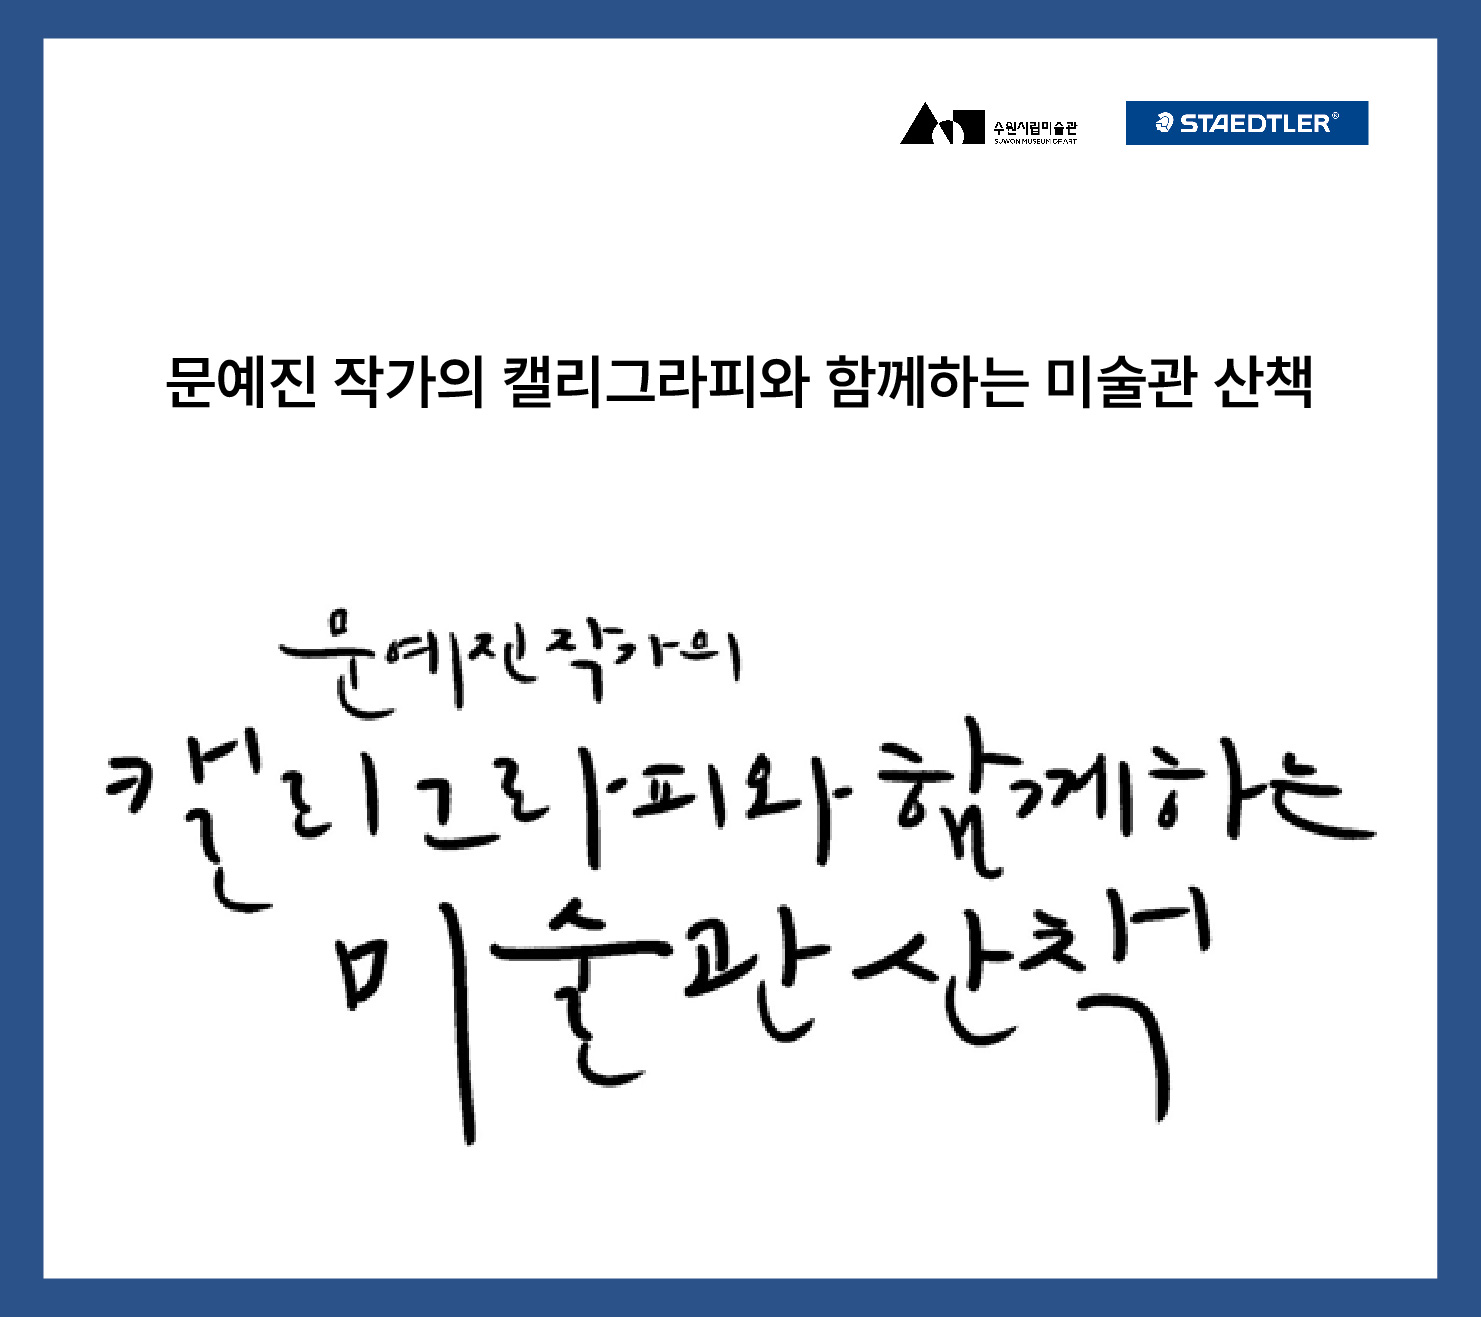 수원시립미술관
SUWON MUSEUM OF ART
STAEDTLER®
문예진 작가의 캘리그라피와 함께하는 미술관 산책
문예진 작가의
캘리그라피와 함께하는
미술관 산책